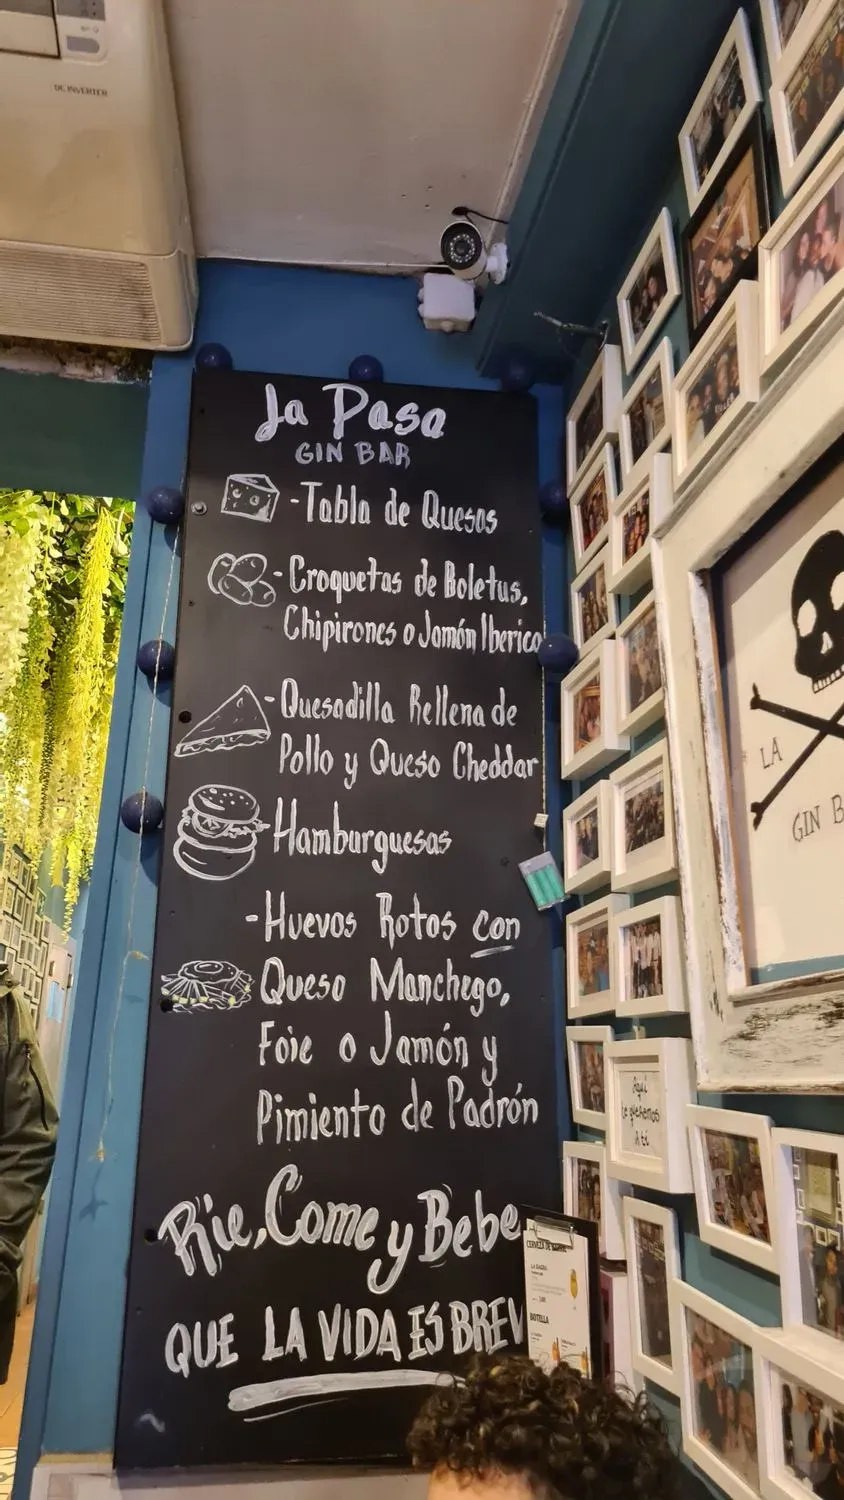 DC INVERTER
La Pasa
GIN BAR
-Tabla de Quesos
-Croquetas de Boletus,
Chipirones o Jamón Iberico
-Quesadilla Rellena de
Pollo y Queso Cheddar
-Hamburguesas
-Huevos Rotos con
Queso Manchego,
Foie o Jamón y
Pimiento de Padrón
Rie, Come y Bebe
QUE LA VIDA ES BREV
LA
GIN B
Aquí
te queremos
a ti
CERVEZA DE
BOTELLA